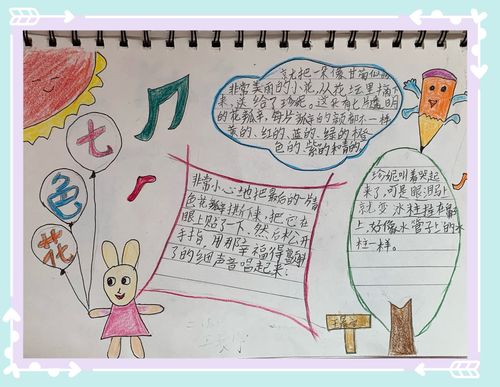 七
色
花
说把一朵像甘菊似的
非常美丽的小花，从花坛里摘下
来，送给了珍妮。这朵有七片透明
的花瓣，每片瓣的颜都不一样
黄的、红的、蓝的、绿的、橙
色的、紫的和青的
非常小心地把最后的一片青
色花瓣撕下来，把它在
眼上贴了一下，然后松开
手指，用那幸福得
了的细声音唱起来：
珍妮叫着哭起
来了，可是眼泪马上
就变冰柱挂在鼻
上，好像水管子上的冰
柱一样。